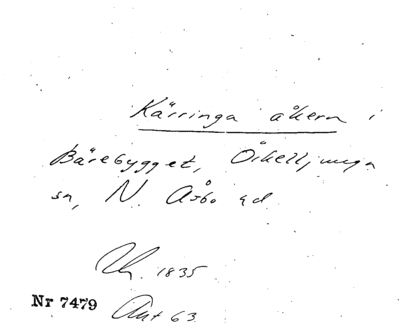 Kärringa åkern i
Bärebygget, Örkelljunga
sn, N. Åsbo hd
1835
Nr 7479 Ant 63